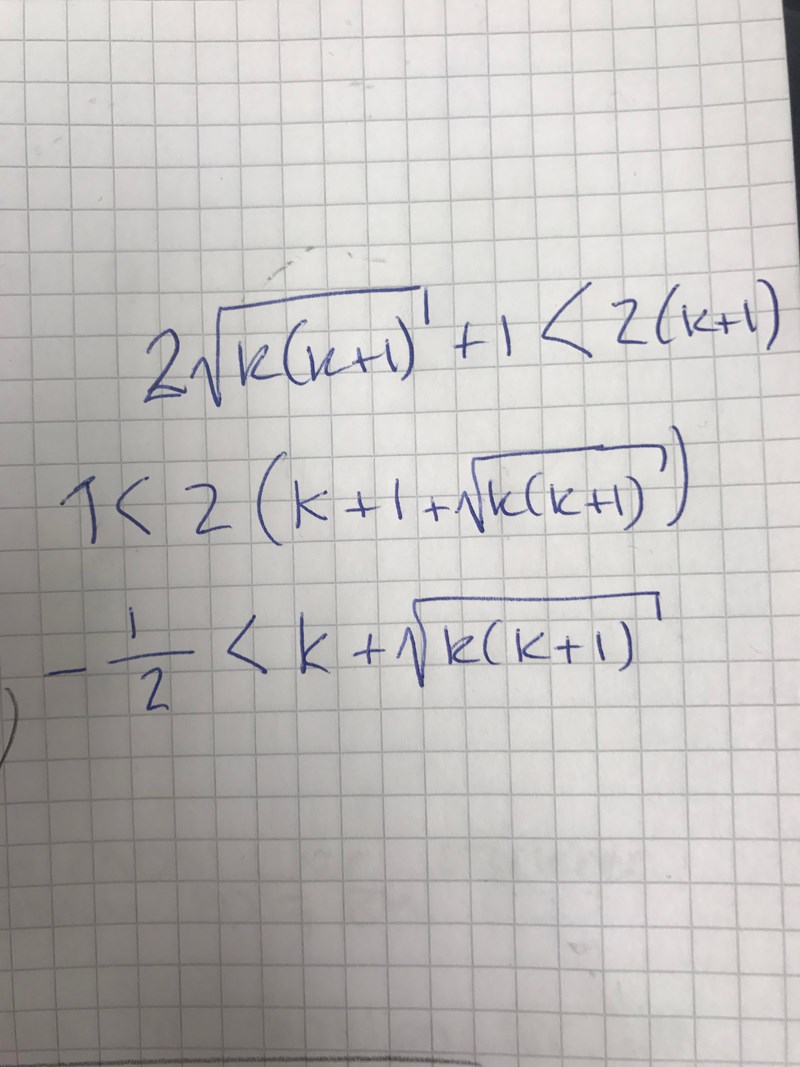 2√(k(k+1)) + 1 < 2(k+1)
1 < 2(k+1+√(k(k+1)))
-1/2 < k+√(k(k+1))